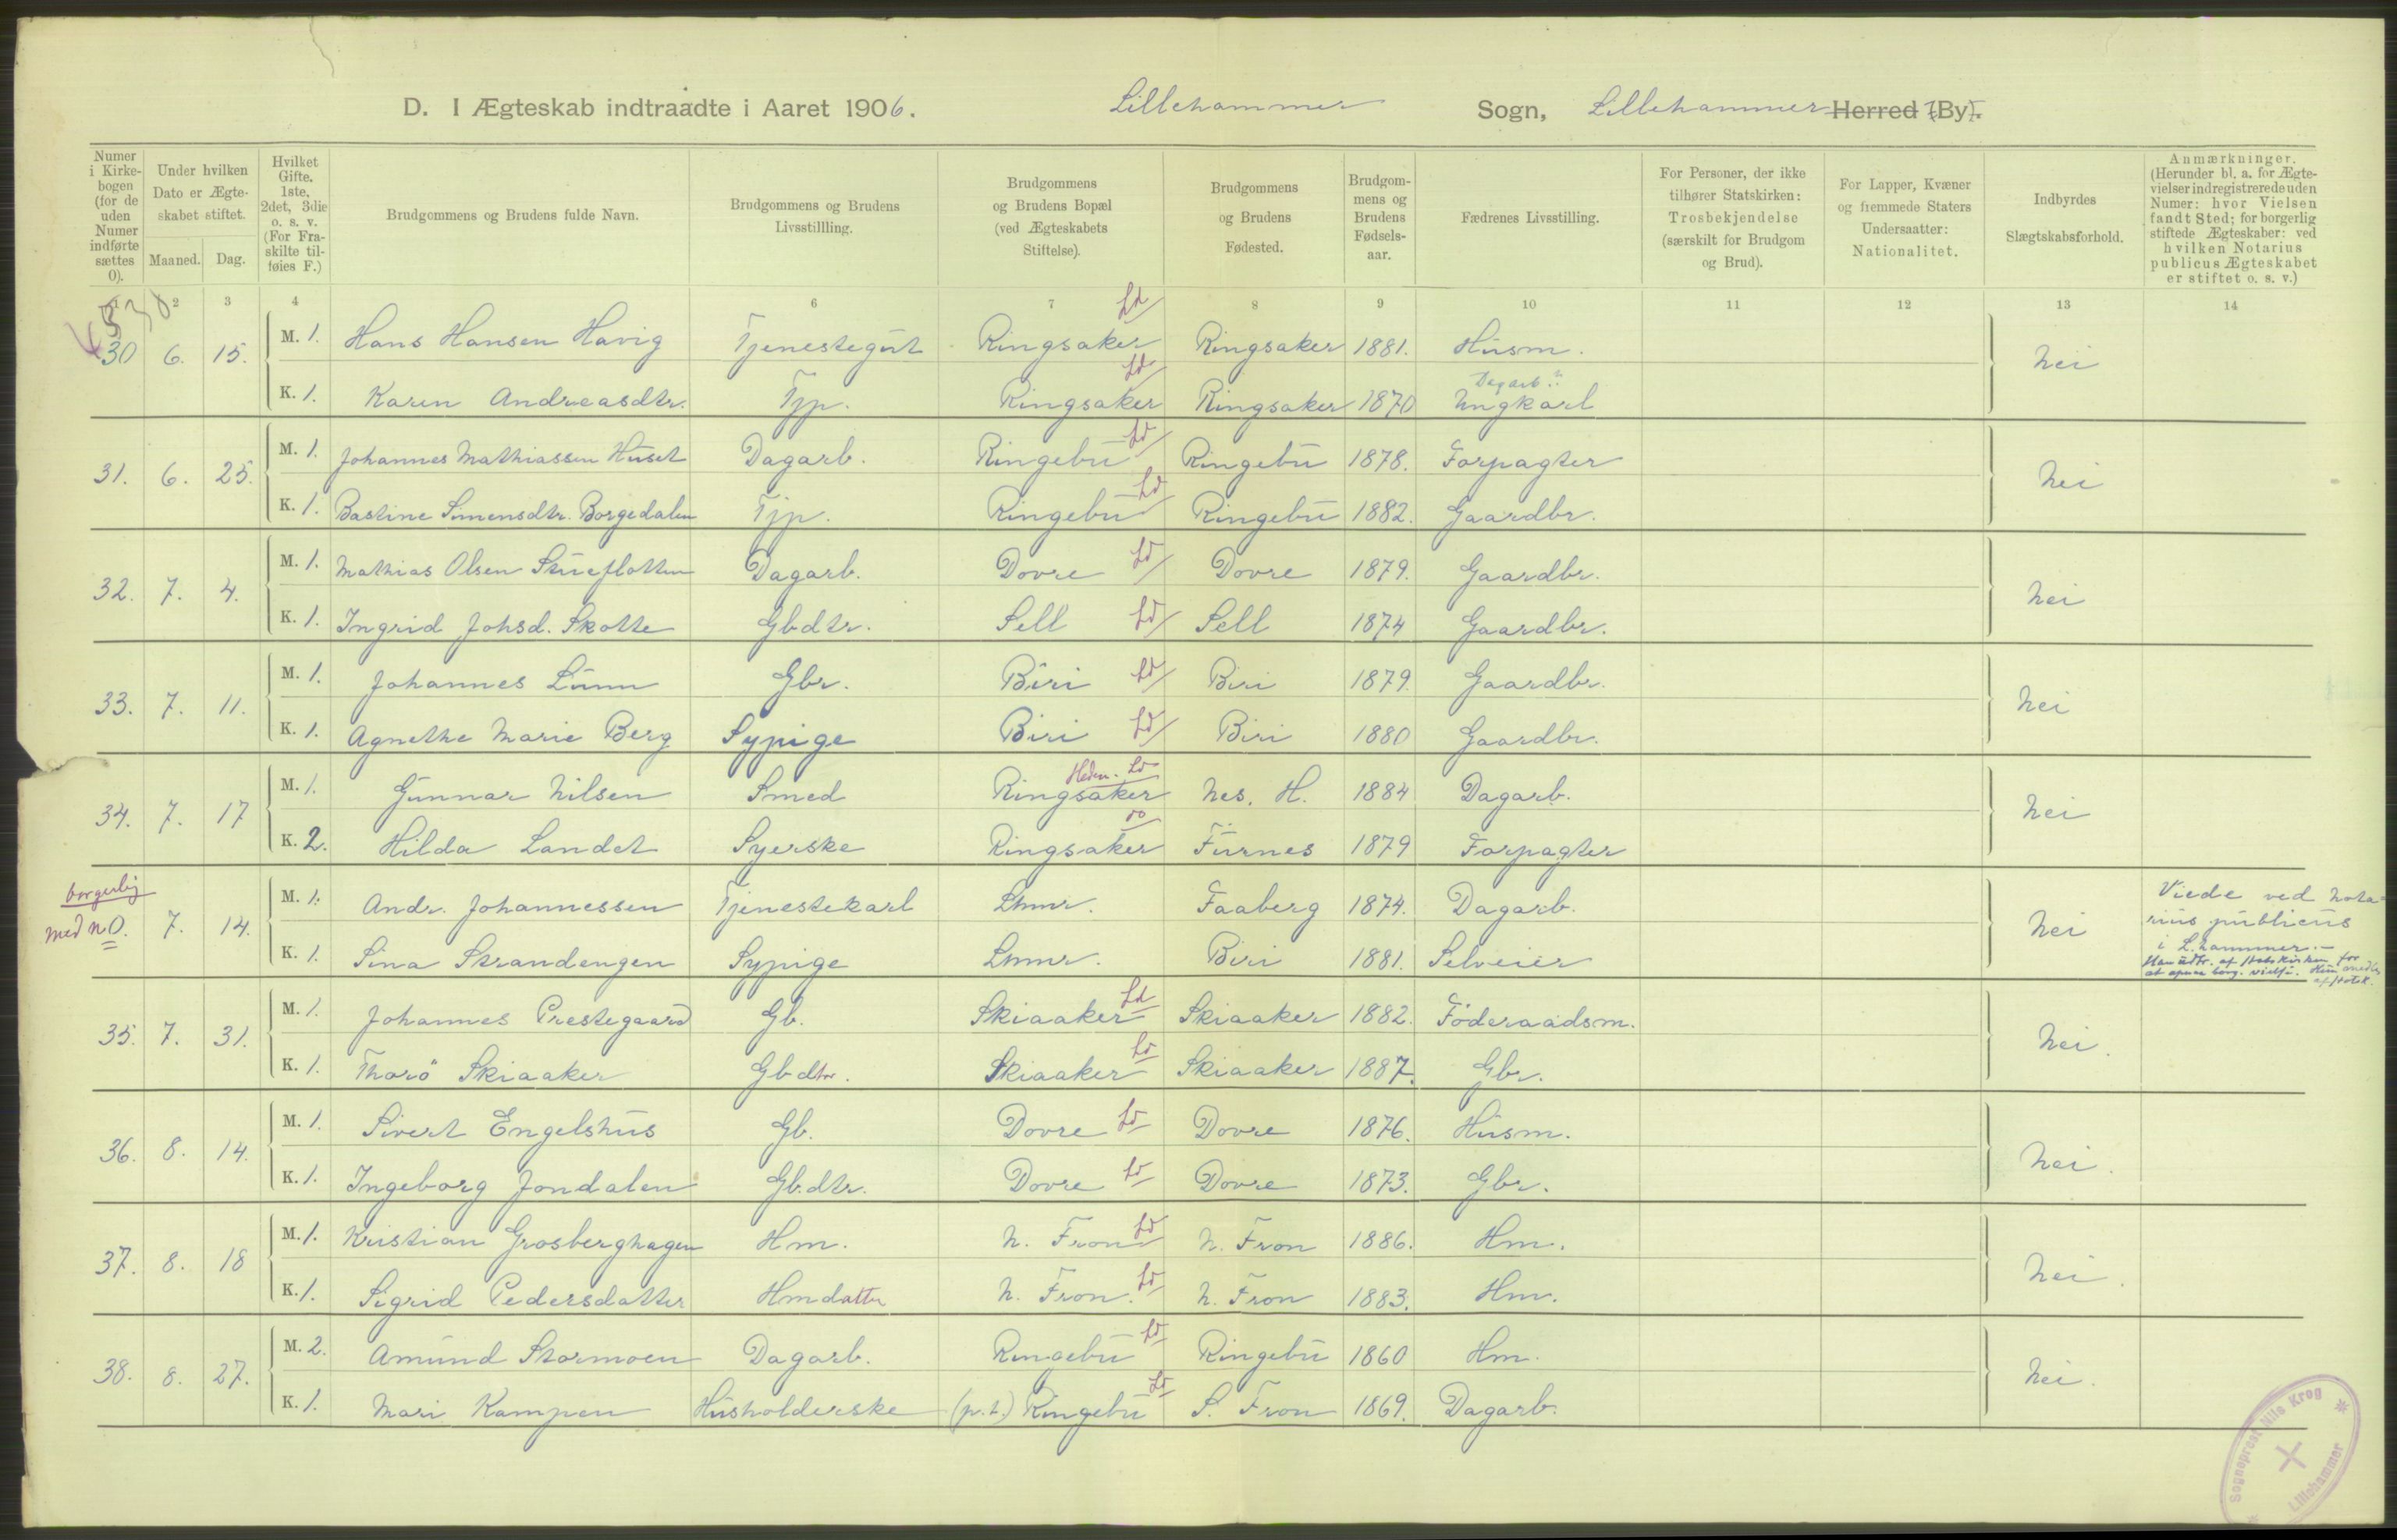 D. I Ægteskab indtraadte i Aaret 1906. Lillehammer Sogn, Lillehammer Herred (By).
Numer i Kirke-bogen (for de uden Numer indførte sættes 0).
Under hvilken Dato er Ægte-skabet stiftet.
Maaned. Dag.
Hvilket Gifte. 1ste, 2det, 3die o. s. v. (For Fra-skilte til-føies F.)
Brudgommens og Brudens fulde Navn.
Brudgommens og Brudens Livsstillling.
Brudgommens og Brudens Bopæl (ved Ægteskabets Stiftelse).
Brudgommens og Brudens Fødested.
Brudgom-mens og Brudens Fødsels-aar.
Fædrenes Livsstilling.
For Personer, der ikke tilhører Statskirken: Trosbekjendelse (særskilt for Brudgom og Brud).
For Lapper, Kvæner og fremmede Staters Undersaatter: Nationalitet.
Indbyrdes Slægtskabsforhold.
Anmærkninger. (Herunder bl. a. for Ægte-vielser indregistrerede uden Numer: hvor Vielsen fandt Sted; for borgerlig stiftede Ægteskaber: ved hvilken Notarius publicus Ægteskabet er stiftet o. s. v.)
1 2 3 4 6 7 8 9 10 11 12 13 14
30 6. 15. M. 1. Hans Hansen Havig Tjenestegut Ringsaker Ld Ringsaker 1881. Husm. Nei
K. 1. Karen Andreasdtr. Tjp. Ringsaker Ld Ringsaker 1870 Dagarb. Ungkarl
31. 6. 25. M. 1. Johannes Mathiassen Huset Dagarb. Ringebu Ld Ringebu 1878. Forpagter Nei
K. 1. Bastine Simensdtr. Borgedalen Tjp. Ringebu Ld Ringebu 1882. Gaardbr.
32. 7. 4. M. 1. Mathias Olsen Stueflotten Dagarb. Dovre Ld Dovre 1879. Gaardbr. Nei
K. 1. Ingrid Johsd. Skotte Gbdtr. Sell Ld Sell 1874 Gaardbr.
33. 7. 11. M. 1. Johannes Lunn Gbr. Biri Ld Biri 1879. Gaardbr. Nei
K. 1. Agnethe Marie Berg Sypige Biri Ld Biri 1880 Gaardbr.
34. 7. 17 M. 1. Gunnar Nilsen Smed Ringsaker Hedm. Ld Nes. H. 1884 Dagarb. Nei
K. 2. Hilda Landet Syerske Ringsaker do Furnes 1879 Forpagter
borgerlig
med n 0. 7. 14. M. 1. Andr. Johannessen Tjenestekarl Lhmr. Faaberg 1874. Dagarb. Nei Viede ved Nota-
rius publicus
K. 1. Sina Strandengen Sypige Lhmr. Biri 1881. Selveier i L.hammer. -
Han udtr. af statskirken for
at opnaa borg. vielse. Hun medl.
af statsk.
35. 7. 31. M. 1. Johannes Prestegaard Gb. Skiaaker Ld Skiaaker 1882. Föderaadsm. Nei.
K. 1. Thorö Skiaaker Gbdtr. Skiaaker Ld Skiaaker 1887. Gbr.
36. 8. 14. M. 1. Sivert Engelshus Gb. Dovre Ld Dovre 1876. Husm. Nei.
K. 1. Ingeborg Jondalen Gb.dtr. Dovre Ld Dovre 1873. Gbr.
37. 8. 18 M. 1. Kristian Grosberghagen Hm. N. Fron Ld N. Fron 1886. Hm. Nei.
K. 1. Sigrid Pedersdatter Hmdatter N. Fron. Ld N. Fron 1883. Hm.
38. 8. 27. M. 2. Amund Stormoen Dagarb. Ringebu Ld Ringebu 1860 Hm. Nei.
K. 1. Mari Kampen Husholderske (p.t.) Ringebu Ld S. Fron 1869. Dagarb.
Sogneprest Nils Krog
Lillehammer